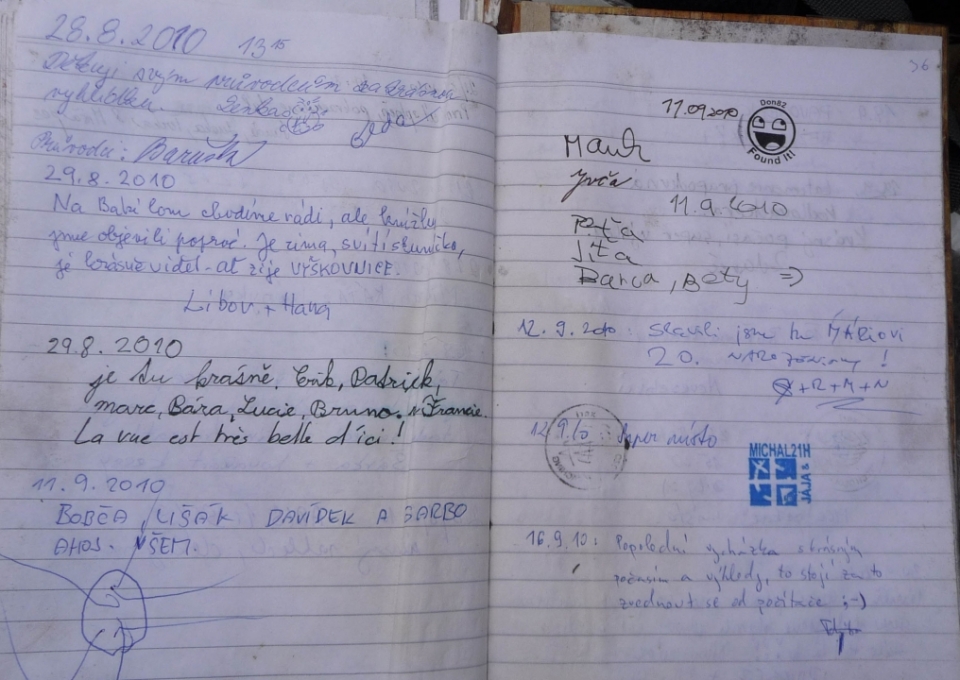 28.8.2010 13 15
Děkuji svým průvodcům za krásnou
vyhlídku. Lenka
Průvodci: Baruška
29.8.2010
Na Babí lom chodíme rádi, ale knížku
jsme objevili poprvé. Je zima, svítí sluníčko,
je krásně vidět - ať žije VÝŠKOVNICE.
Libor + Hana
29.8.2010
je tu krásně, Erik, Patrick,
marc, Bára, Lucie, Bruno. Francie.
La vue est très belle d'ici!
11.9.2010
BOBČA, LIŠÁK DAVÍDEK A BARBO
AHOJ VŠEM.
36
11.09.2010
Don82
Found It!
Yvča
11.9.2010
Péťa
Jíťa
Barca, Béty =>
12.9.2010: Slavili jsme tu MÁRIOVI
20. NAROZENINY!
+R+M+N
12.9.10: Super místo
MICHAL21H
JAJA &
16.9.10: Popolední vycházka s krásným
počasím a výhledy, to stojí za to
zvednout se od počítače ;-)